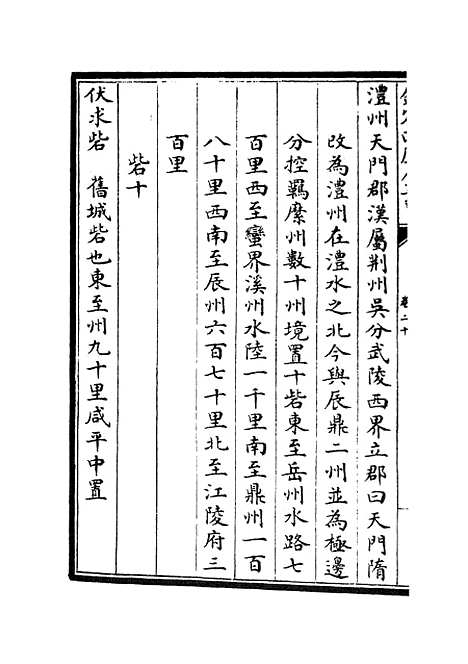 卷二十
澧州天門郡漢屬荆州吳分武陵西界立郡曰天門隋
改為澧州在澧水之北今與辰鼎二州並為極邊
分控羈縻州數十州境置十砦東至岳州水路七
百里西至蠻界溪州水陸一千里南至鼎州一百
八十里西南至辰州六百七十里北至江陵府三
百里
砦十
伏求砦　舊城砦也東至州九十里咸平中置